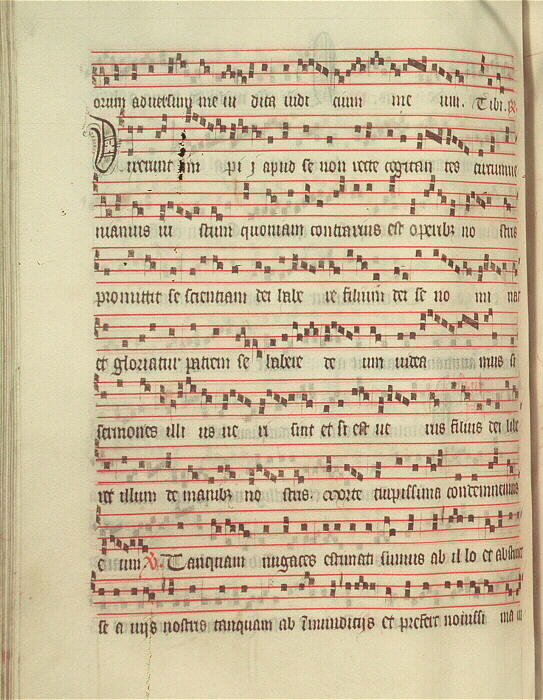 orum adversum me iu dica iudi cium me um. Tibi. R
Dixerunt im pi i apud se non recte cogitan tes circumue
niamus iu stum quoniam contrarius est operibz no stris
promittit se scientiam dei habe re filium dei se no mi nat
et gloriatur patrem se habere de um videa mus si
sermones illi us ue ri sint et si est ue rus filius dei libe
ret illum de manibz no stris. morte turpissima condemnemus
e um V Tanquam nugaces estimati sumus ab il lo et abstinet
se a uijs nostris tanquam ab imundicijs et prefert nouissi ma iu